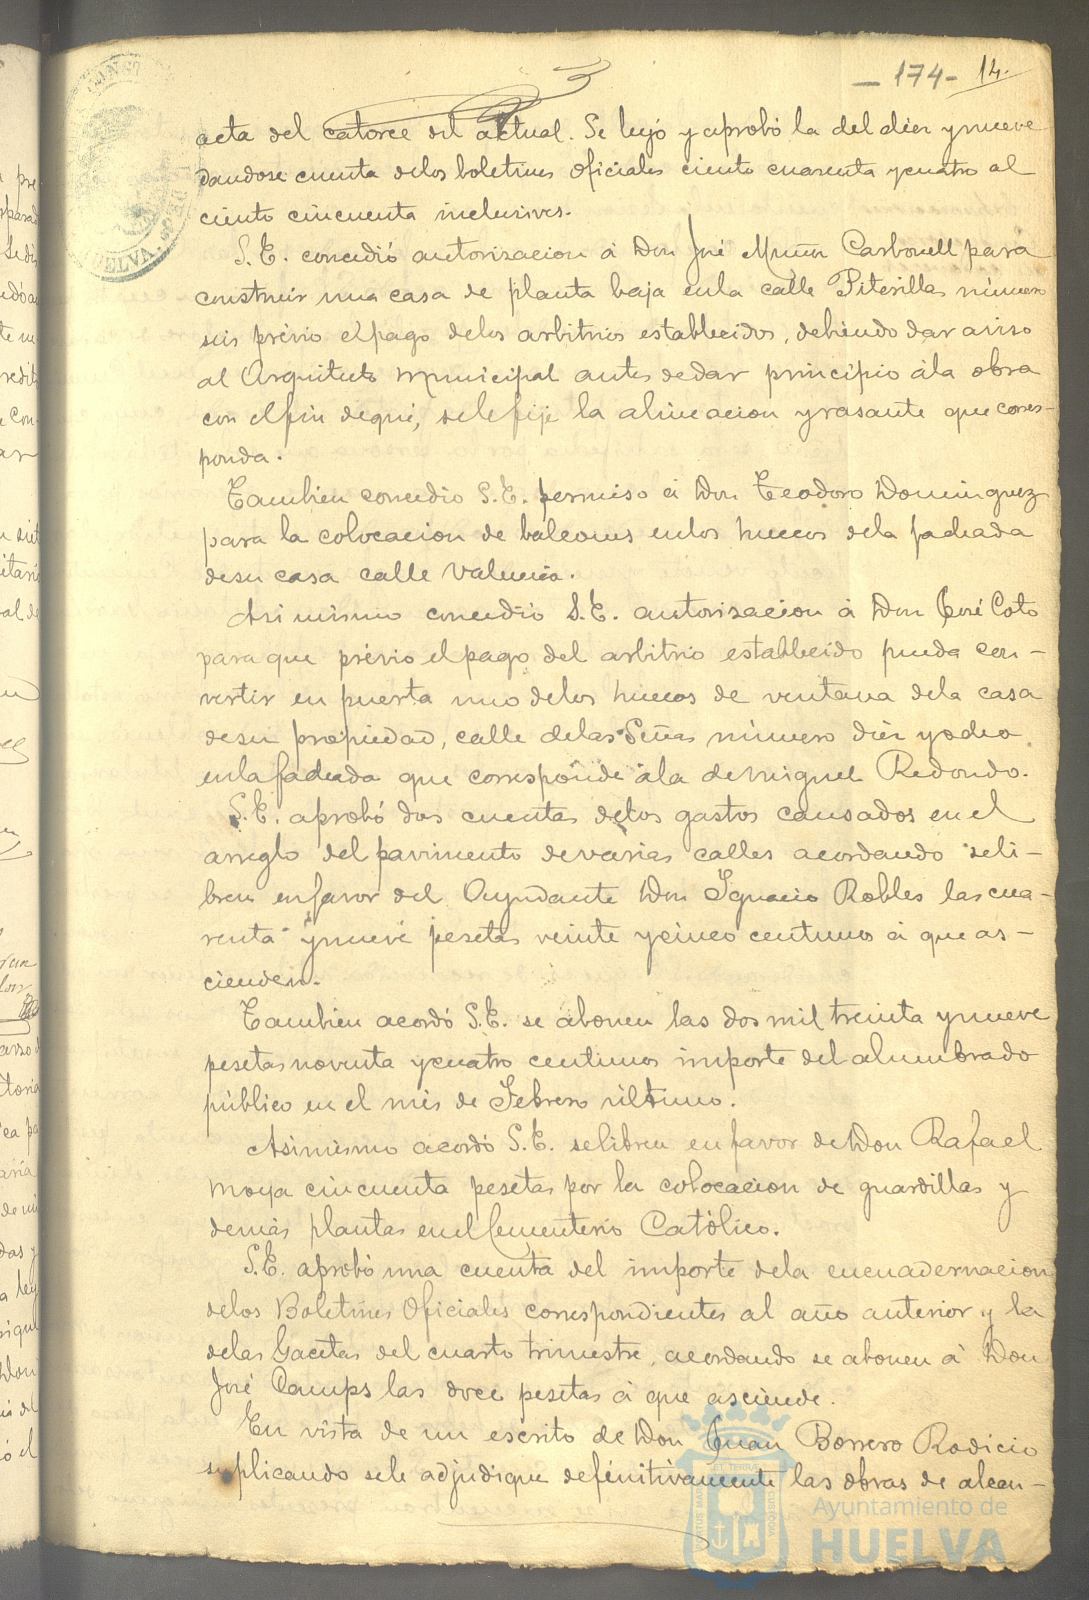 - 174 - 14.
acta del catorce del actual. Se leyó y aprobó la del diez y nueve
dandose cuenta delos boletines oficiales ciento cuarenta y cuatro al
ciento cincuenta inclusives.
S. E. concedió autorizacion á Don José Muñoz Carbonell para
construir una casa de planta baja enla calle Piterilla número
seis prévio el pago delos arbitrios establecidos, debiendo dar aviso
al Arquitecto municipal antes de dar principio ála obra
con elfin deque, sele fije la alineacion y rasante que corres-
ponda.
Tambien concedio S. E. permiso á Don Teodoro Dominguez
para la colocacion de balcones enlos huecos dela fachada
desu casa calle Valencia.
Asi mismo concedio S. E. autorizacion á Don José Coto
para que prévio el pago del arbitrio establecido pueda con-
vertir en puerta uno delos huecos de ventana dela casa
desu propiedad, calle delas Peñas número diez y ocho
enla fachada que corresponde ála de Miguel Redondo.
S. E. aprobó dos cuentas delos gastos causados en el
arreglo del pavimento de varias calles acordando seli-
bren enfavor del Ayudante Don Ignacio Robles las cua-
renta y nueve pesetas veinte y cinco centimos á que as-
cienden.
Tambien acordó S. E. se abonen las dos mil treinta y nueve
pesetas noventa y cuatro centimos importe del alumbrado
público en el mes de Febrero último.
Asimismo acordó S. E. selibren en favor de Don Rafael
Moya cincuenta pesetas por la colocacion de guardillas y
demás plantas en el Cementerio Católico.
S. E. aprobó una cuenta del importe dela encuadernacion
delos Boletines Oficiales correspondientes al año anterior y la
delas Gacetas del cuarto trimestre, acordando se abonen á Don
José Camps las doce pesetas á que asciende.
En vista de un escrito de Don Juan Borrero Rodicio
suplicando sele adjudique definitivamente las obras de alcan-
Ayuntamiento de
HUELVA